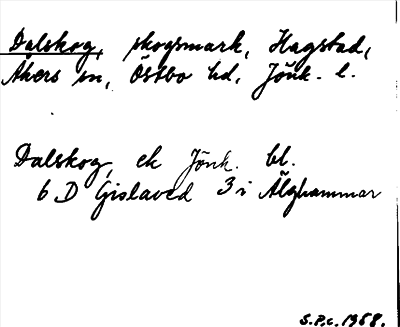 Dalskog, skogsmark, Hagstad,
Åkers sn, Östbo hd, Jönk. l.
Dalskog, ek Jönk. bl.
6 D Gislaved 3 i Älghammar
S.P.C. 1968.